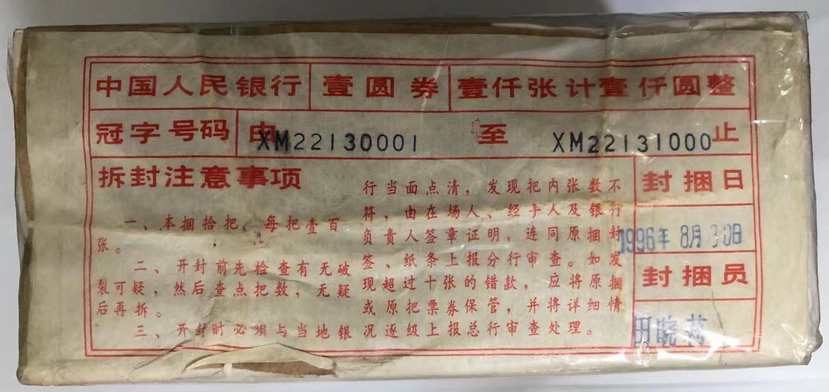 中国人民银行 壹圆券 壹仟张计壹仟圆整
冠字号码 由 XM22130001 至 XM22131000 止
拆封注意事项
一、本捆拾把，每把壹百
张。
二、开封前先检查有无破
裂可疑，然后查点把数，无疑
后再拆。
三、开封时必须与当地银
行当面点清，发现把内张数不
符，由在场人、经手人及银行
负责人签章证明，连同原捆封
签、纸条上报分行审查。如发
现超过十张的错款，应将原捆
或原把票券保管，并将详细情
况逐级上报总行审查处理。
封捆日
1996年 8月 日
封捆员
田晓